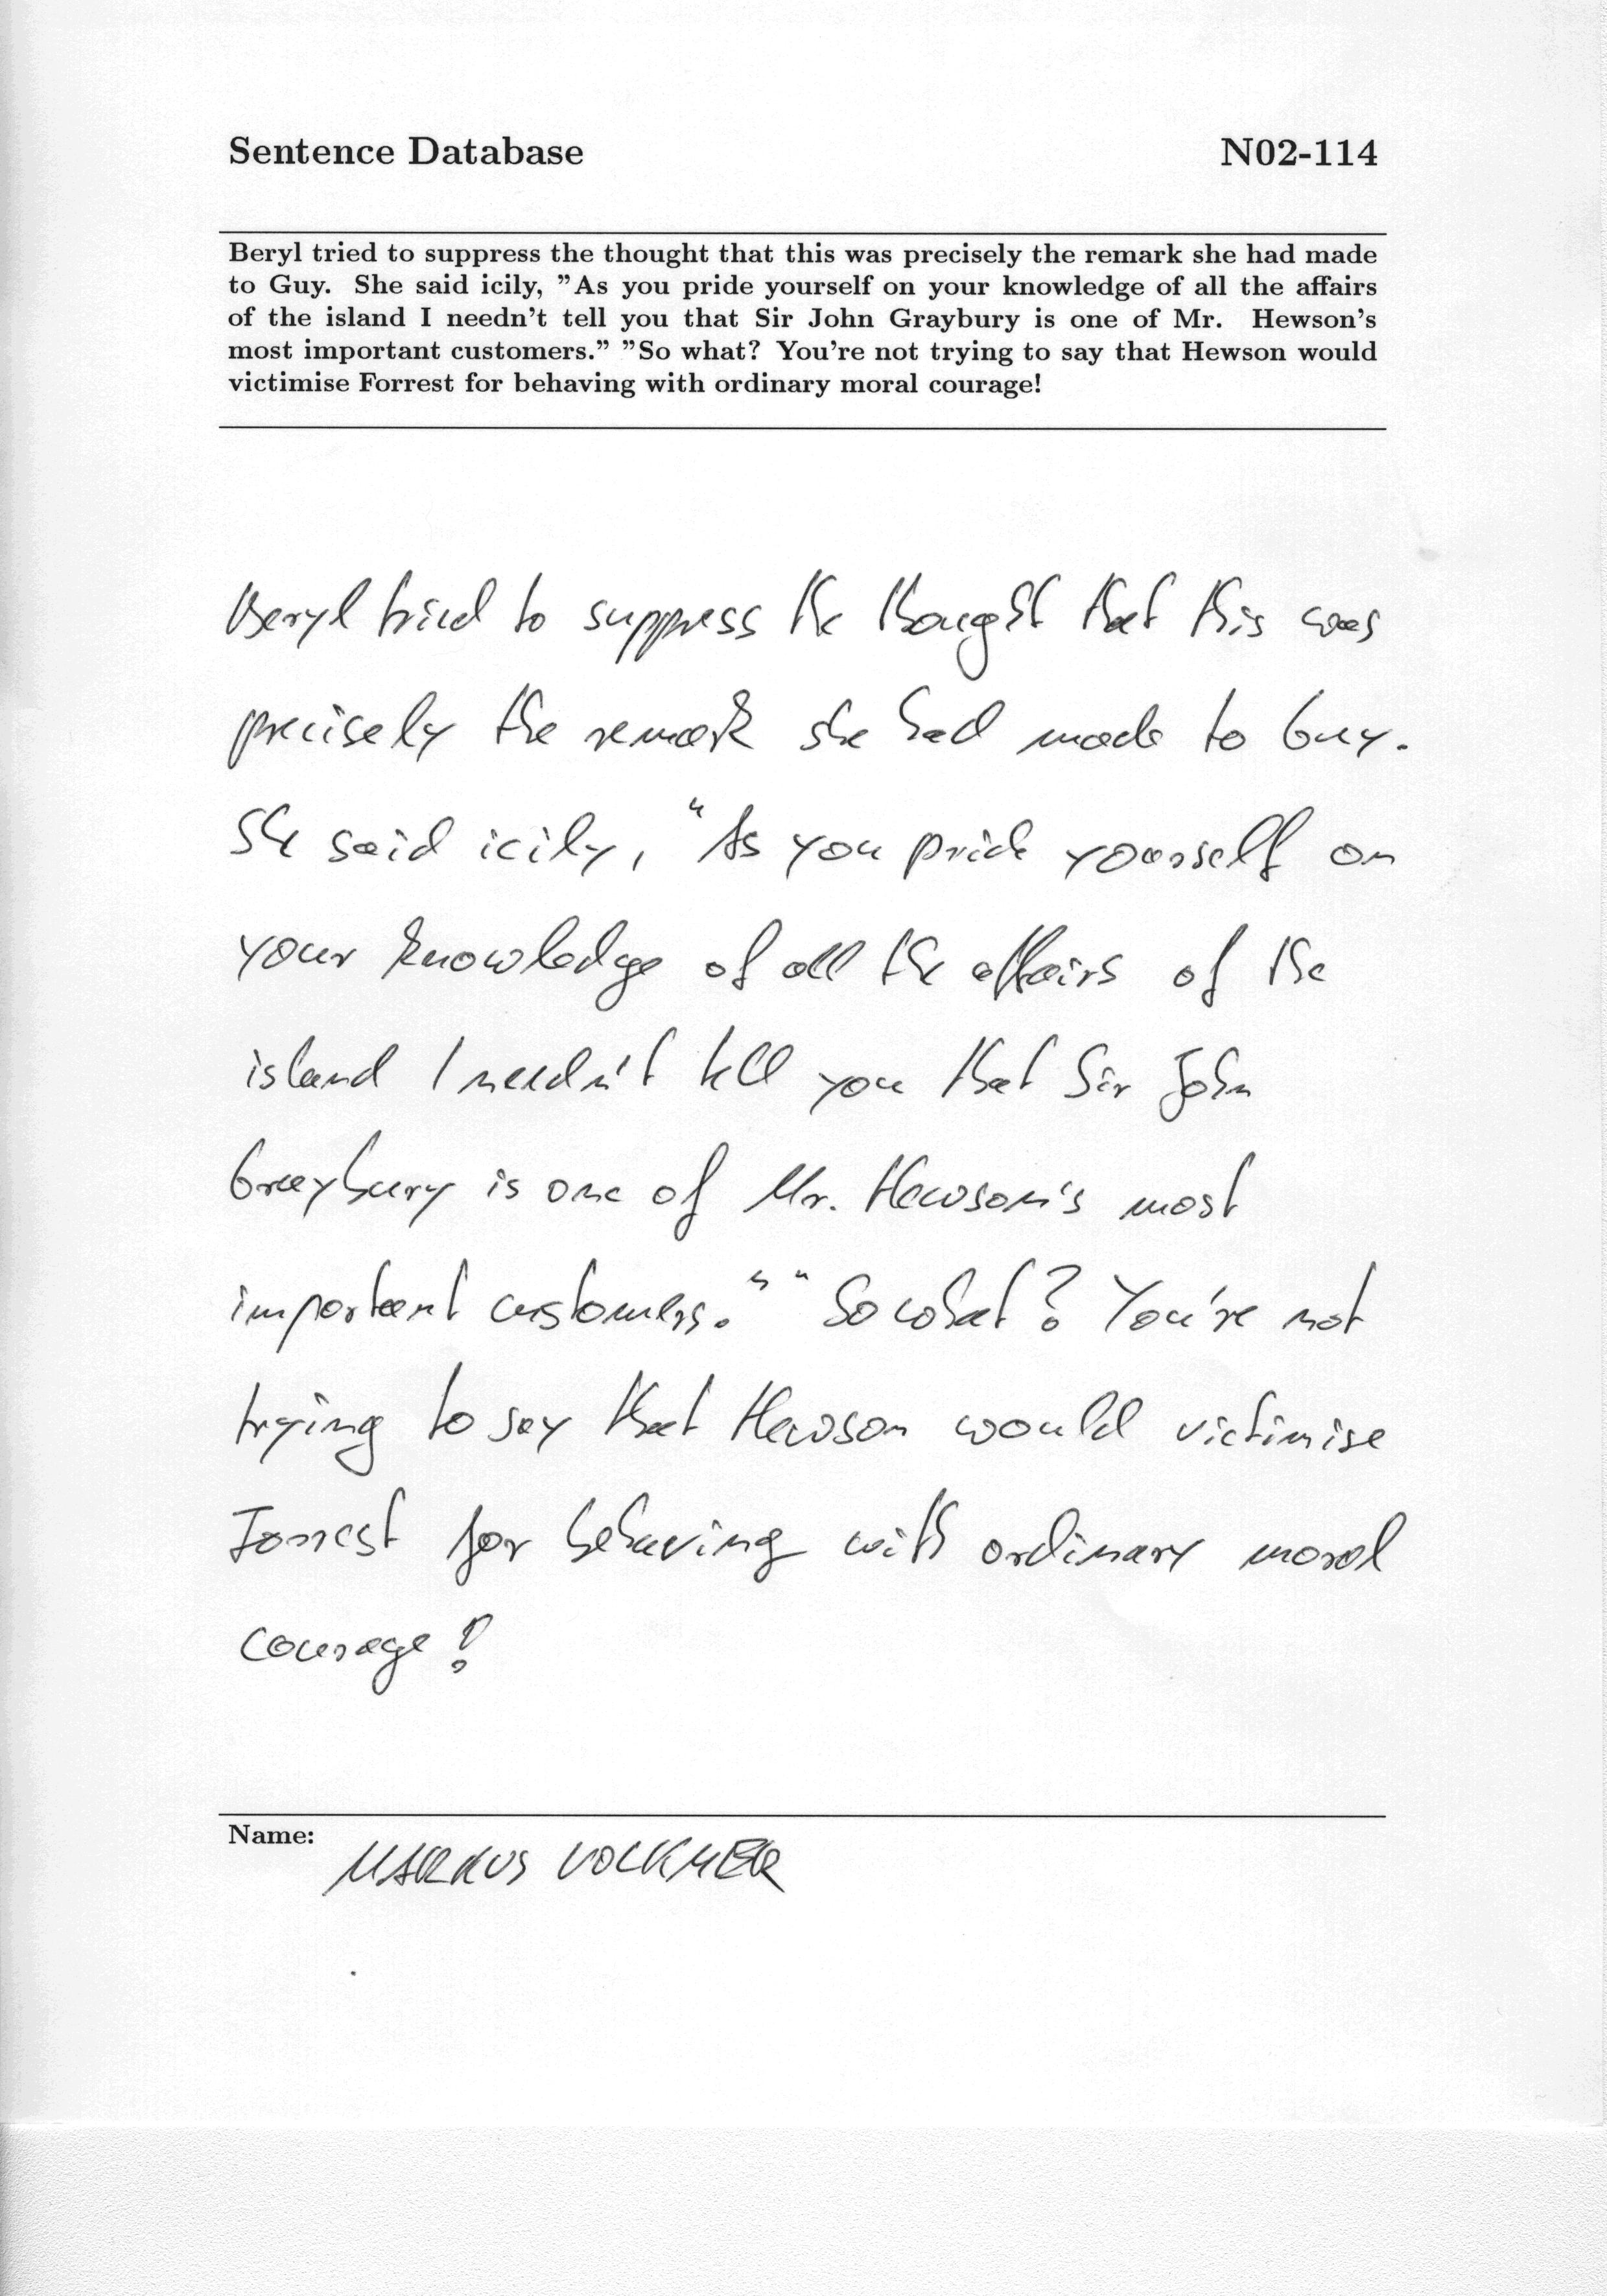 Sentence Database N02-114
Beryl tried to suppress the thought that this was precisely the remark she had made
to Guy. She said icily, ”As you pride yourself on your knowledge of all the affairs
of the island I needn't tell you that Sir John Graybury is one of Mr. Hewson's
most important customers.” ”So what? You're not trying to say that Hewson would
victimise Forrest for behaving with ordinary moral courage!
Beryl tried to suppress the thought that this was
precisely the remark she had made to Guy.
She said icily, "As you pride yourself on
your knowledge of all the affairs of the
island I needn't tell you that Sir John
Graybury is one of Mr. Hewson's most
important customers." "So what? You're not
trying to say that Hewson would victimise
Forrest for behaving with ordinary moral
courage!
Name: MARKUS VOLKMER